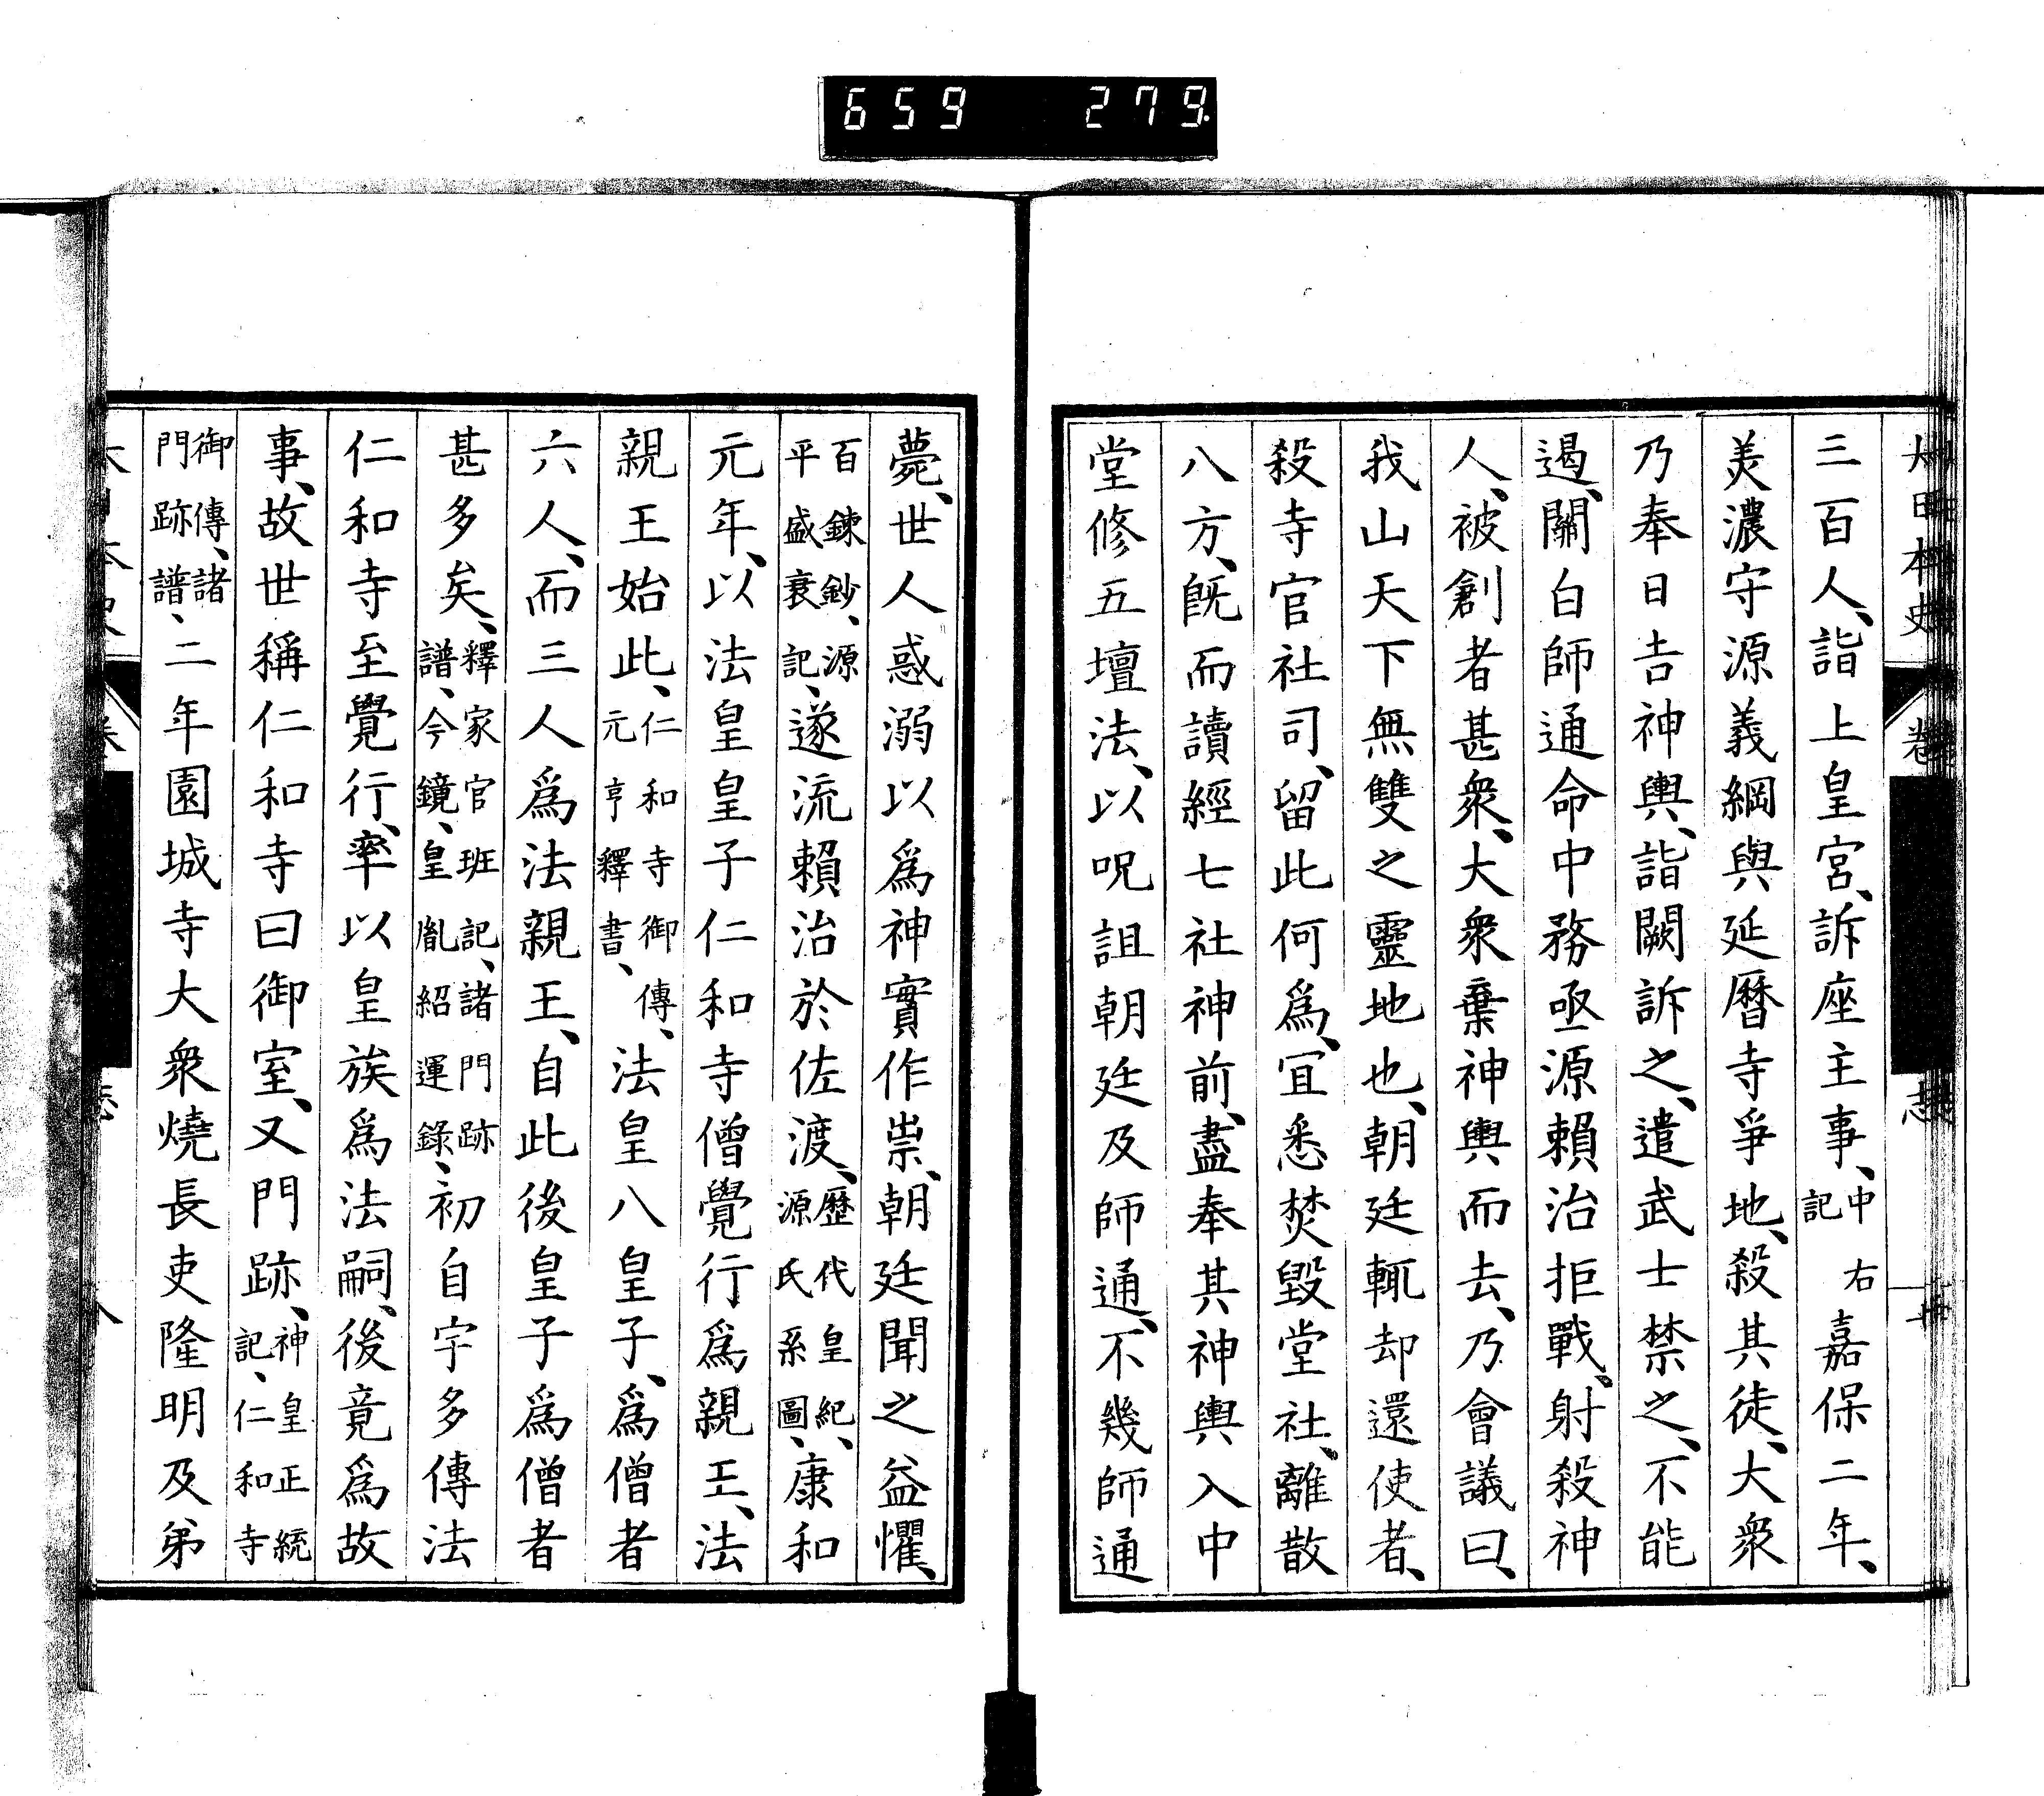 659 279.
三百人、詣上皇宮、訴座主事、中右記嘉保二年、
美濃守源義綱與延曆寺爭地、殺其徒、大衆
乃奉日吉神輿、詣闕訴之、遣武士禁之、不能
遏、關白師通命中務丞源賴治拒戰、射殺神
人、被創者甚衆、大衆棄神輿而去、乃會議曰、
我山天下無雙之靈地也、朝廷輒却還使者、
殺寺官社司、留此何爲、宜悉焚毀堂社、離散
八方、旣而讀經七社神前、盡奉其神輿入中
堂修五壇法、以呪詛朝廷及師通、不幾師通
薨、世人惑溺以爲神實作祟、朝廷聞之益懼、
百鍊鈔、源平盛衰記、遂流賴治於佐渡、歷代皇紀、源氏系圖、康和
元年、以法皇皇子仁和寺僧覺行爲親王、法
親王始此、仁和寺御傳、元亨釋書、法皇八皇子、爲僧者
六人、而三人爲法親王、自此後皇子爲僧者
甚多矣、釋家官班記、諸門跡譜、今鏡、皇胤紹運錄、初自宇多傳法
仁和寺至覺行、率以皇族爲法嗣、後竟爲故
事、故世稱仁和寺曰御室、又門跡、神皇正統記、仁和寺
御傳、諸門跡譜、二年園城寺大衆燒長吏隆明及弟